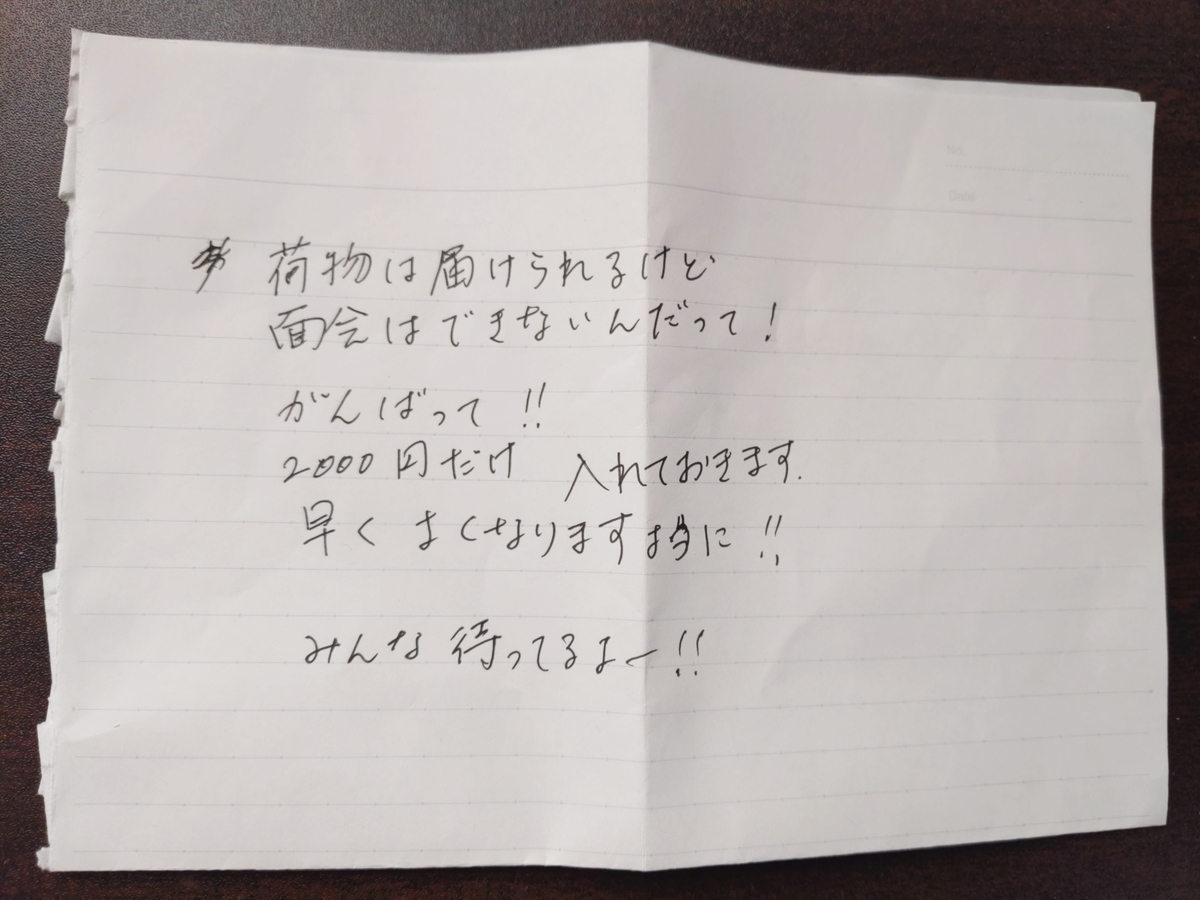 No.
Date
荷物は届けられるけど
面会はできないんだって!
がんばって!!
2000円だけ 入れておきます.
早くよくなりますように!!
みんな待ってるよー!!